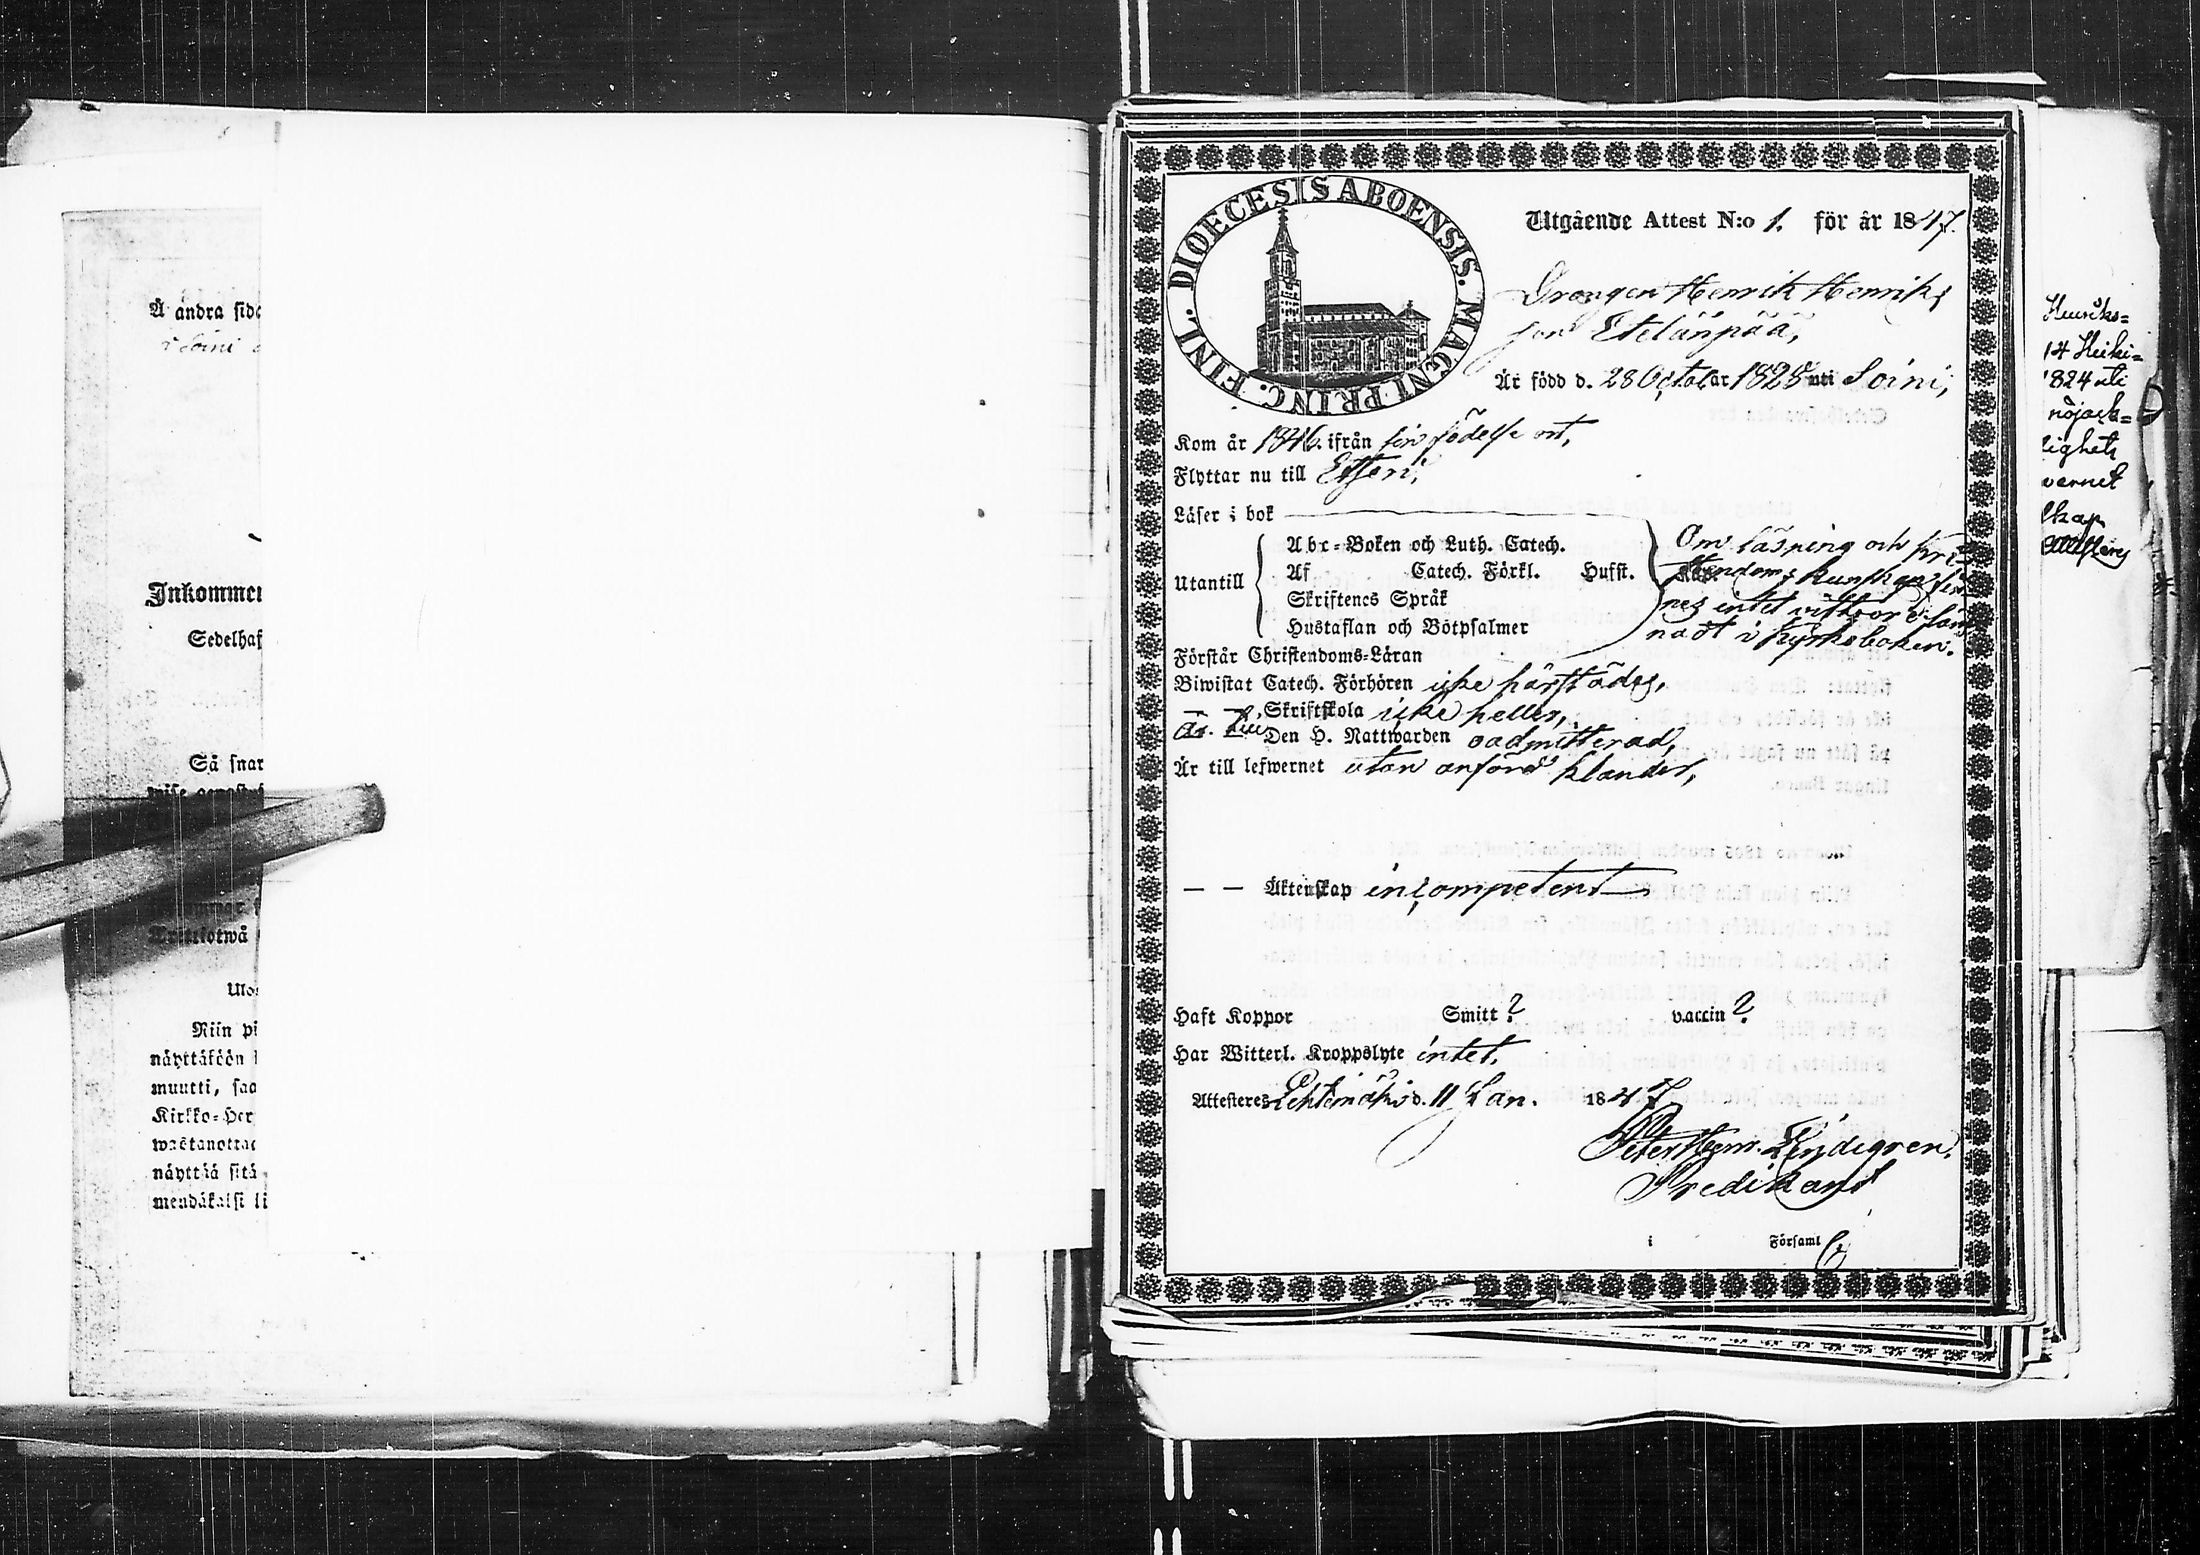 Å andra sid
i Soini
Inkommen
Sedelhaf
Så snar
Ulos
Niin pi
näyttäköön
muutti, saa
Kirkko-Her
näyttää sitä
DIOECESIS ABOENSIS. MAGNI PRINC. FINL.
Utgående Attest N:o 1. för år 1847.
Drengen Henrik Henriks
son Etelänpää,
Är född d. 28 October 1828 uti Soini,
Kom år 1846. ifrån sin födelse ort,
Flyttar nu till Etseri,
Läser i bok
Abc-Boken och Luth. Catech.
Utantill Af Catech. Förkl. Hufst. Kap.
Skriftenes Språk
Hustaflan och Bötpsalmer
Om läsning och kri
stendoms kunskap fin
nes intet vitsord läm
nadt i kyrkoboken.
Förstår Christendoms-Läran
Biwistat Catech. Förhören icke härstädes,
— — Skriftskola icke heller,
Är till Den H. Nattwarden oadmitterad,
Är till lefwernet utan anförd klander,
— — Äktenskap incompetent
Haft Koppor Smitt? vaccin?
Har Witterl. Kroppslyte intet.
Attesteres Lehtimäki d. 11 Jan. 1847
Peter Henr. Lindegren.
Predikant
i Församl
Henriks-
14 Heiki-
1824 uti
nöjack-
lighets
vernet
skap